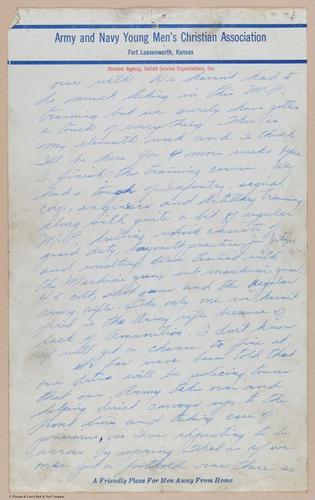 Army and Navy Young Men's Christian Association
Fort Leavenworth, Kansas
Member Agency, United Service Organizations, Inc.
over with. We haven't had to
do much hiking in this M.P.
training but we surely have gotten
a touch of everything. This is
my eleventh week and I think
I'll be here for 4 more weeks before
I finish this training course. We
had a touch of Infantry, signal
corps, engineers and artillery training
along with quite a bit of regular
M.P. drilling which consists of
guard duty, bayonet practice, Jiu Jitsu
and wrestling. We're trained with
the Machine gun, sub machine gun,
45 colt, shot guns and the regular
army rifle. The only one we haven't
fired is the Army rifle because of
lack of Amunition. I don't know
if will get a chance to fire it.
So far we've been told that
our duties will be policing towns
that our Army takes over and
helping direct convoys up to the
front lines and taking care of
prisoners, so I'm expecting to be
across by spring. That is if we
once get a foothold over there so
A Friendly Place For Men Away From Home